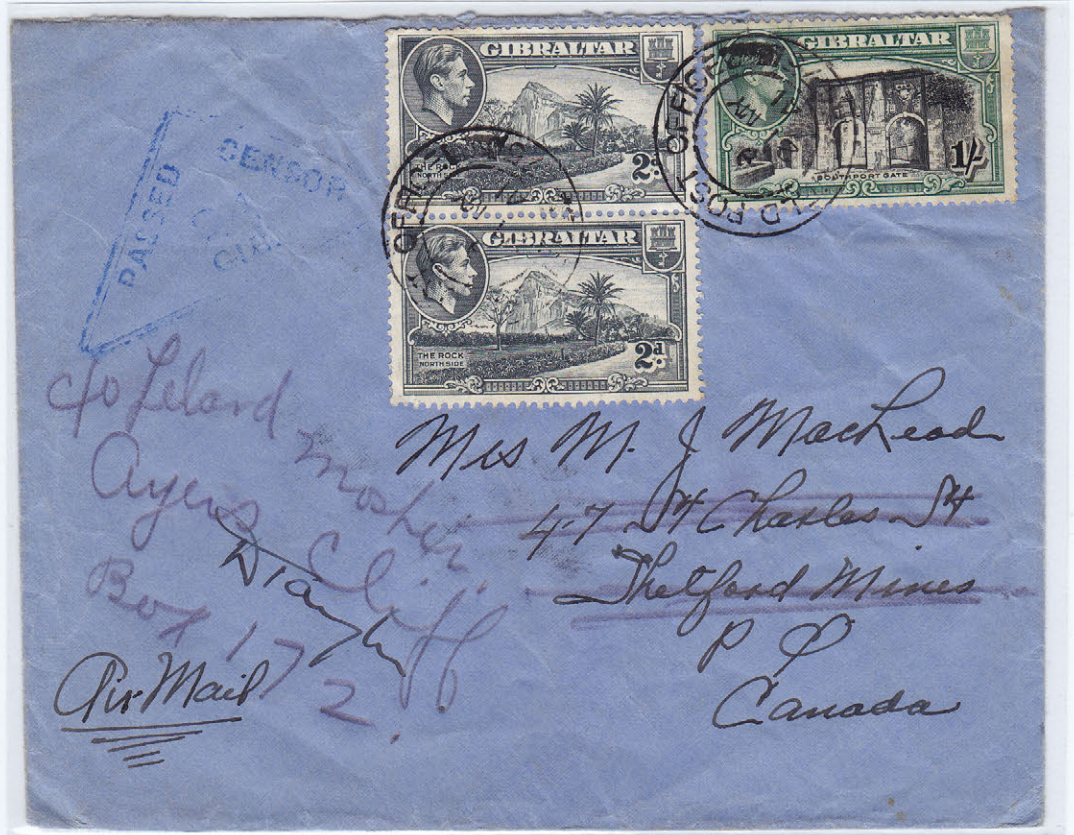 GIBRALTAR
THE ROCK
NORTH SIDE
2d
GIBRALTAR
SOUTHPORT GATE
1/-
GIBRALTAR
THE ROCK
NORTH SIDE
2d
FIELD POST OFFICE
PASSED
CENSOR
c/o Leland
Mosher
Ayers Cliff
Box 172.
Air Mail
Mrs M. J MacLeod
47 St Charles St
Thetford Mines
P Q
Canada